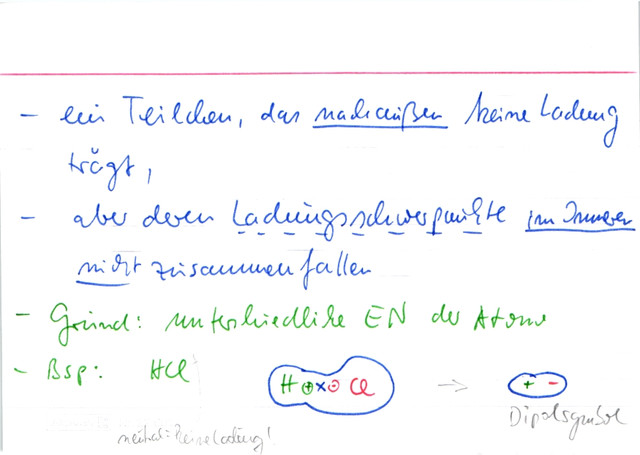 - ein Teilchen, das nach außen keine Ladung
trägt,
- aber deren Ladungsschwerpunkte im Inneren
nicht zusammenfallen
- Grund: unterschiedliche EN der Atome
- Bsp: HCl H + x - Cl → + -
Dipolsymbol
neutral = keine Ladung!